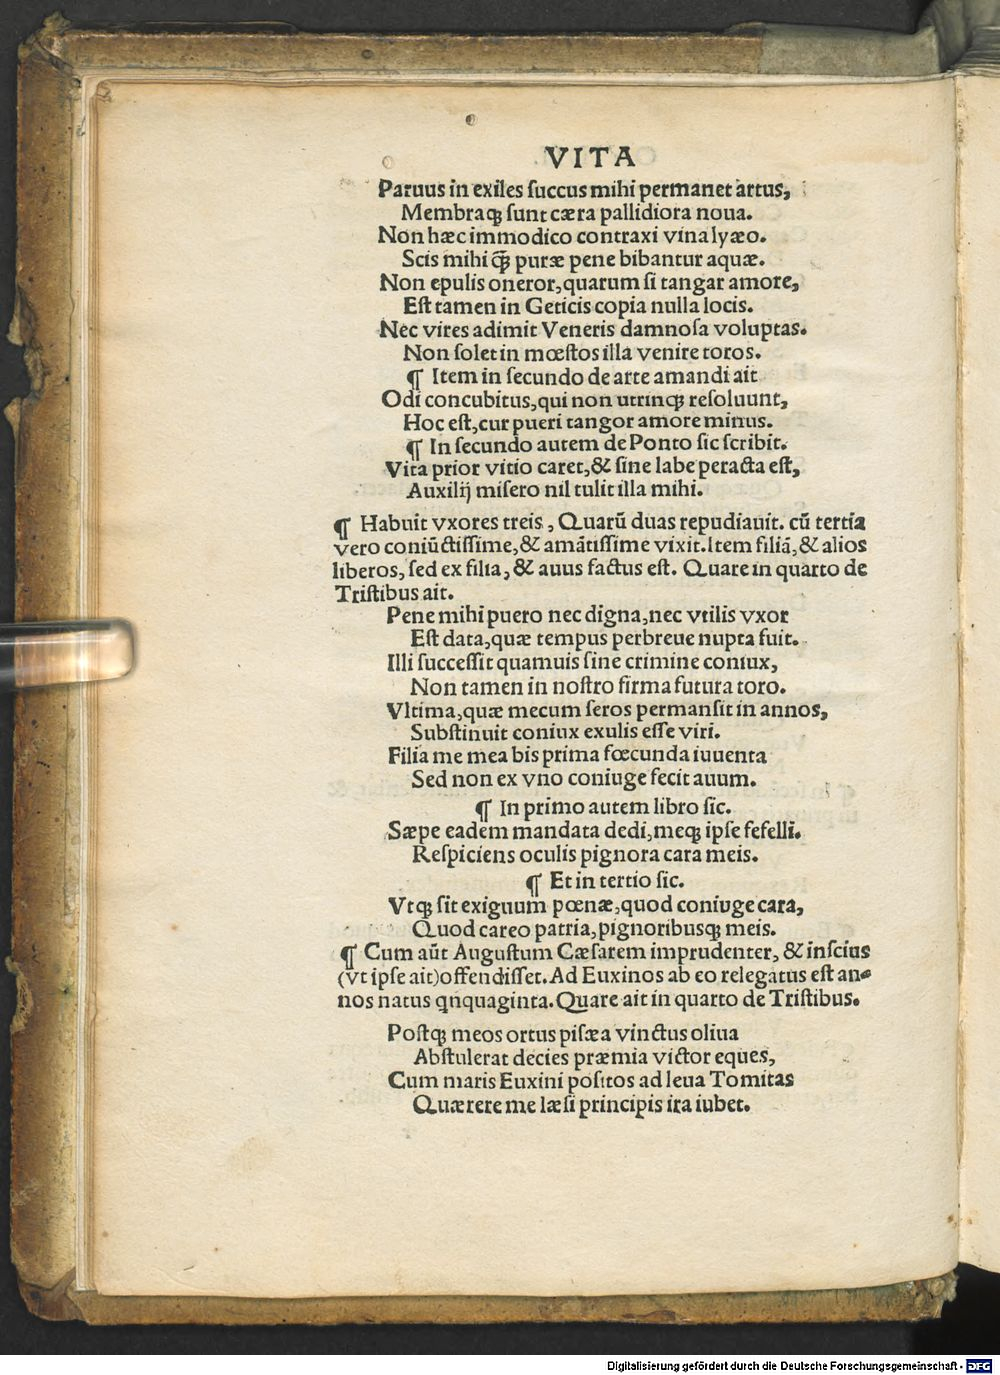 VITA
Paruus in exiles ſuccus mihi permanet artus,
Membraq; ſunt cæra pallidiora noua.
Non hæc immodico contraxi vina lyæo.
Scis mihi q̃; puræ pene bibantur aquæ.
Non epulis oneror, quarum ſi tangar amore,
Eſt tamen in Geticis copia nulla locis.
Nec vires adimit Veneris damnoſa voluptas.
Non ſolet in mœſtos illa venire toros.
¶ Item in ſecundo de arte amandi ait
Odi concubitus, qui non utrinq; reſoluunt,
Hoc eſt, cur pueri tangor amore minus.
¶ In ſecundo autem de Ponto ſic ſcribit.
Vita prior vitio caret, & ſine labe peracta eſt,
Auxilij miſero nil tulit illa mihi.
¶ Habuit vxores treis, Quarũ duas repudiauit. cũ tertia
vero coniũctiſſime, & amãtiſſime vixit. Item filiã, & alios
liberos, ſed ex filia, & auus factus eſt. Quare in quarto de
Triſtibus ait.
Pene mihi puero nec digna, nec vtilis vxor
Eſt data, quæ tempus perbreue nupta fuit.
Illi ſucceſſit quamuis ſine crimine coniux,
Non tamen in noſtro firma futura toro.
Vltima, quæ mecum ſeros permanſit in annos,
Subſtinuit coniux exulis eſſe viri.
Filia me mea bis prima fœcunda iuuenta
Sed non ex vno coniuge fecit auum.
¶ In primo autem libro ſic.
Sæpe eadem mandata dedi, meq; ipſe fefelli.
Reſpiciens oculis pignora cara meis.
¶ Et in tertio ſic.
Vtq; ſit exiguum pœnæ, quod coniuge cara,
Quod careo patria, pignoribusq; meis.
¶ Cum aũt Auguſtum Cæſarem imprudenter, & inſcius
(vt ipſe ait) offendiſſet. Ad Euxinos ab eo relegatus eſt an-
nos natus qnquaginta. Quare ait in quarto de Triſtibus.
Poſtq; meos ortus piſæa vinctus oliua
Abſtulerat decies præmia victor eques,
Cum maris Euxini poſitos ad leua Tomitas
Quærere me læſi principis ira iubet.
Digitalisierung gefördert durch die Deutsche Forschungsgemeinschaft - DFG